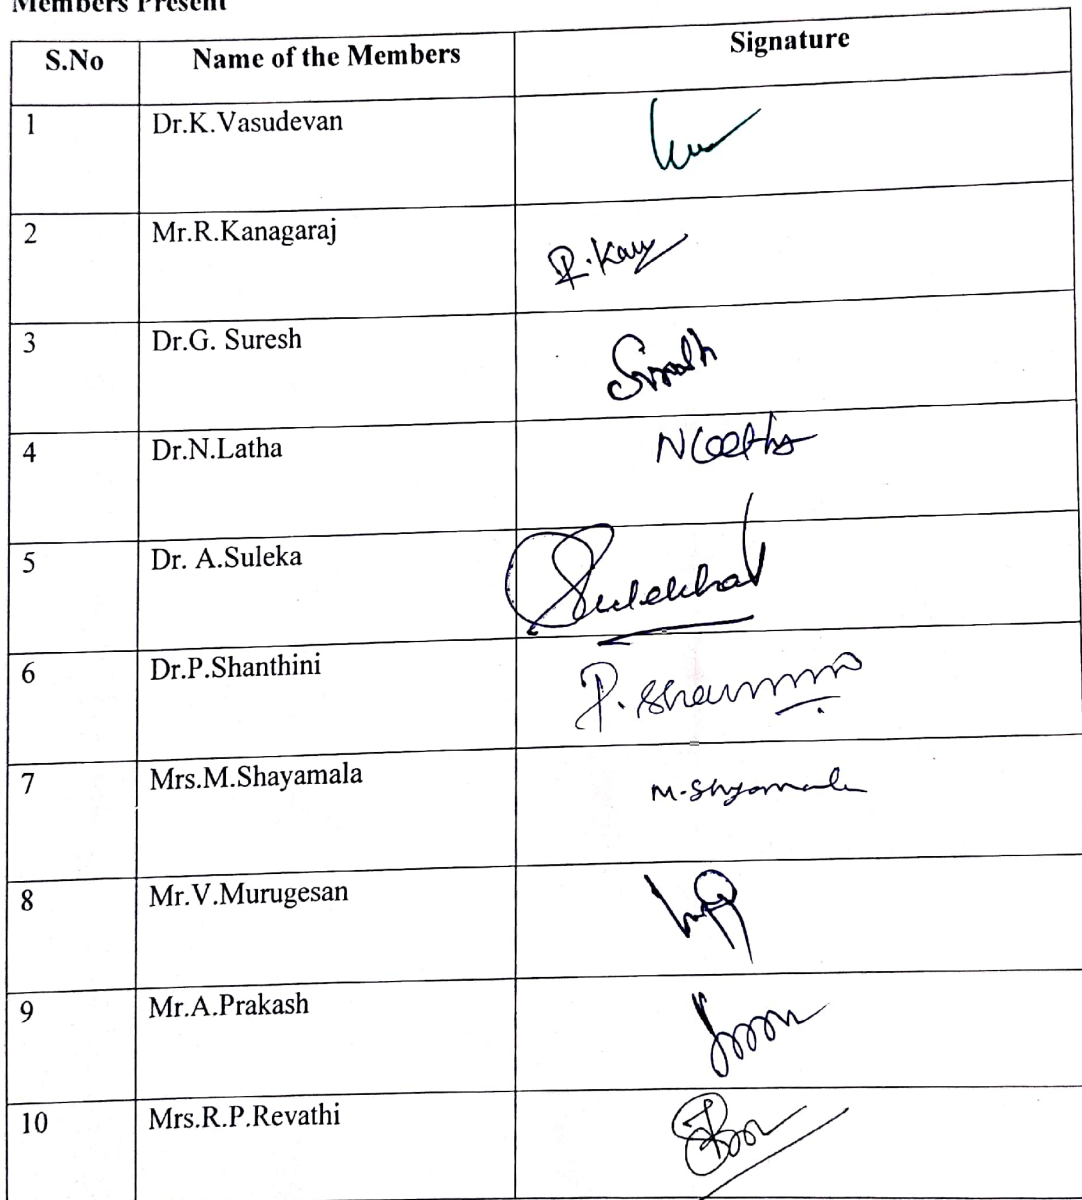 Members Present
S.No Name of the Members Signature
1 Dr.K.Vasudevan
2 Mr.R.Kanagaraj R.Kan
3 Dr.G. Suresh
4 Dr.N.Latha NLatha
5 Dr. A.Suleka Sulekha
6 Dr.P.Shanthini P.
7 Mrs.M.Shayamala M.Shyamala
8 Mr.V.Murugesan
9 Mr.A.Prakash
10 Mrs.R.P.Revathi